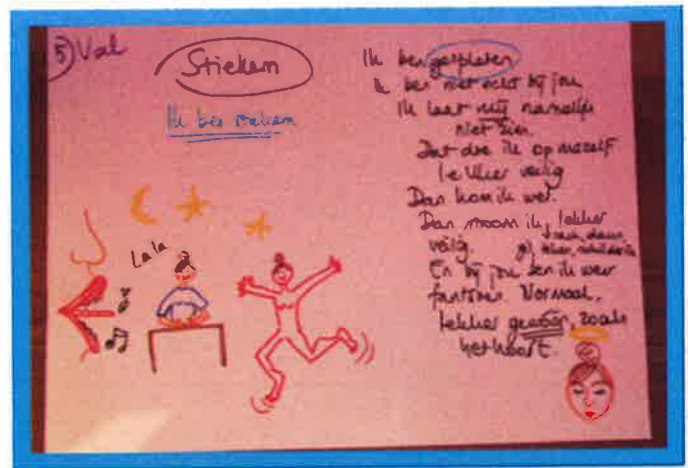 5) Val
Stiekem
Ik ben stiekem
Lala
Ik ben gespleten
Ik ben niet echt bij jou
Ik laat mij namelijk
niet zien.
Dat doe ik op mezelf
veilig
Dan kom ik wel.
Dan ik lekker
veilig.
En bij jou ben ik weer
fantoom. Normaal,
lekker gewoon, zoals
het hoort.